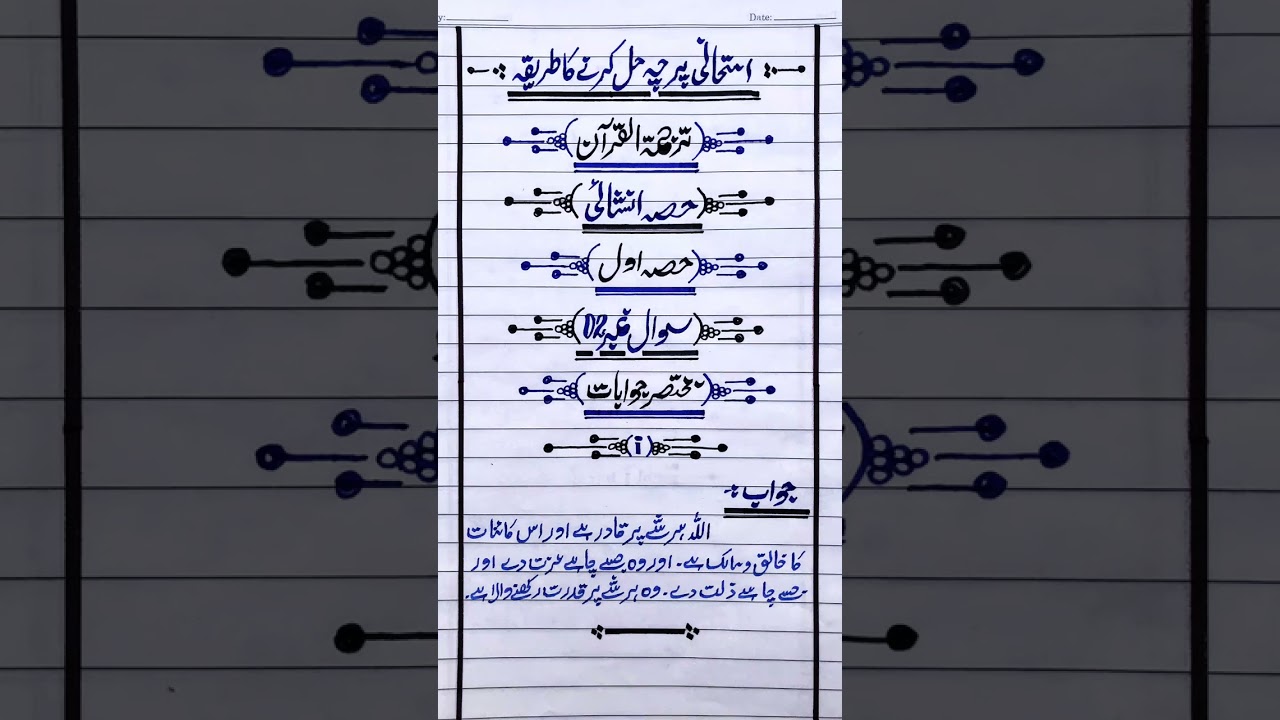 y:
Date:
امتحانی پرچہ حل کرنے کا طریقہ
(ترجمۃ القرآن)
(حصہ انشائی)
(حصہ اول)
(سوال نمبر 02)
(مختصر جوابات)
(i)
جواب:-
اللہ ہر شے پر قادر ہے اور اس کائنات
کا خالق و مالک ہے۔ اور وہ جسے چاہے عزت دے اور
جسے چاہے ذلت دے۔ وہ ہر شے پر قدرت رکھنے والا ہے۔